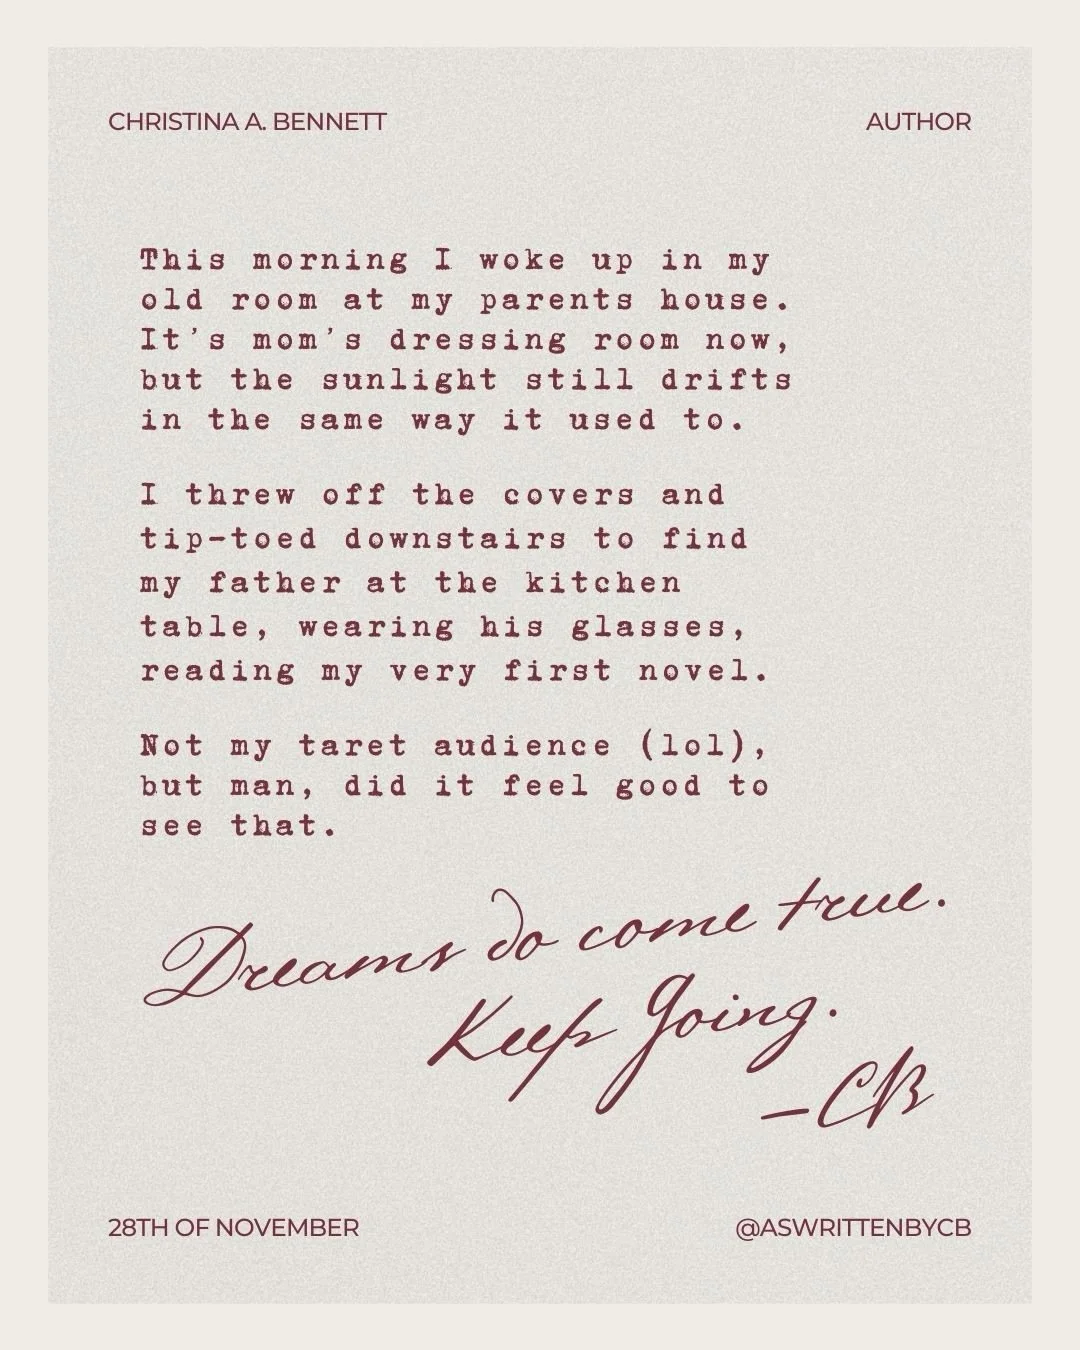 CHRISTINA A. BENNETT
AUTHOR
This morning I woke up in my
old room at my parents house.
It's mom's dressing room now,
but the sunlight still drifts
in the same way it used to.
I threw off the covers and
tip-toed downstairs to find
my father at the kitchen
table, wearing his glasses,
reading my very first novel.
Not my taret audience (lol),
but man, did it feel good to
see that.
Dreams do come true.
Keep Going.
-CB
28TH OF NOVEMBER
@ASWRITTENBYCB